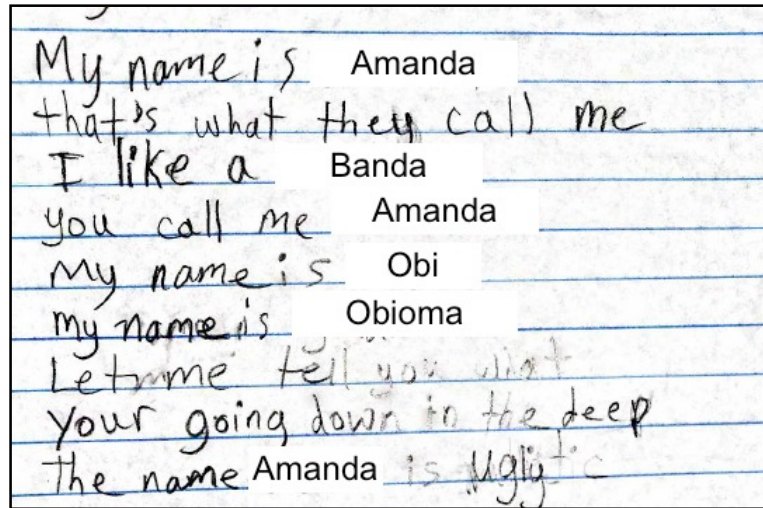 My name is Amanda
that's what they call me
I like a Banda
you call me Amanda
My name is Obi
my name is Obioma
Let me tell you what
your going down in the deep
the name Amanda is Ugly